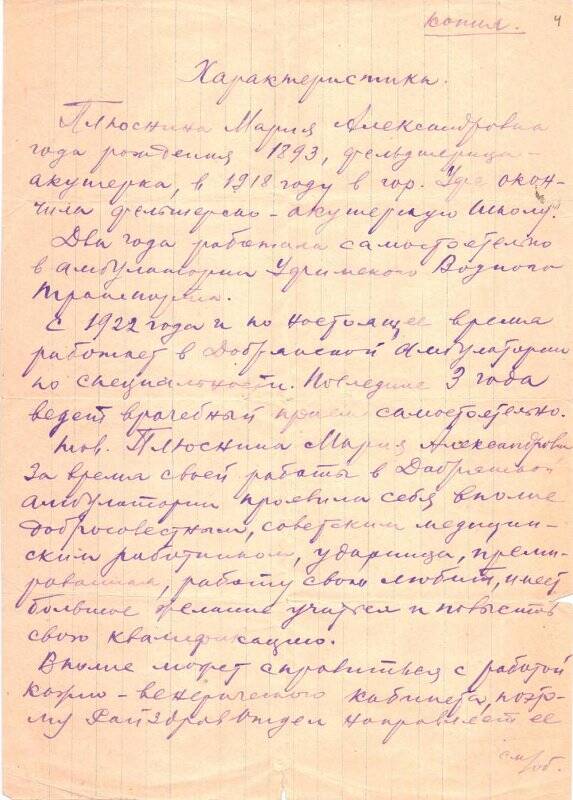 копия. 4
Характеристика.
Плюснина Мария Александровна
года рождения 1893, фельдшерица-
акушерка, в 1918 году в гор. Уфе окон-
чила фельшерско-акушерскую школу.
Два года работала самостоятельно
в амбулатории Уфимского Водного
транспорта.
С 1922 года и по настоящее время
работает в Добрянской амбулатории
по специальности. Последние 3 года
ведет врачебный прием самостоятельно.
тов. Плюснина Мария Александровна
За время своей работы в Добрянской
амбулатории проявила себя вполне
добросовестным, советским медицин-
ским работником, ударница, преми-
рованная, работу свою любит, имеет
большое желание учиться и повысить
свою квалификацию.
Вполне может справиться с работой
кожно-венерического кабинета, поэто-
му РайздравОтдел направляет ее
см/об.